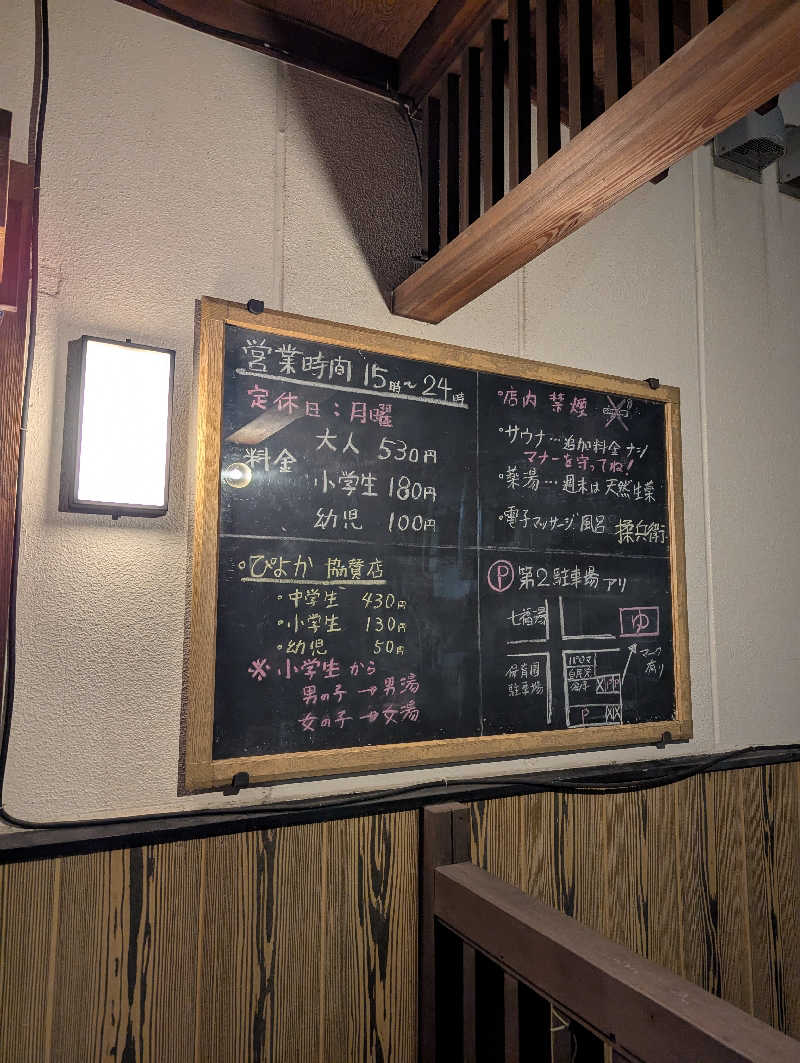 営業時間 15時〜24時
定休日：月曜
料金 大人 530円
小学生 180円
幼児 100円
・ぴよか 協賛店
・中学生 430円
・小学生 130円
・幼児 50円
※小学生から
男の子→男湯
女の子→女湯
・店内 禁煙
・サウナ…追加料金ナシ
マナーを守ってね！
・薬湯…週末は天然生薬
・電子マッサージ風呂 揉兵衛
Ⓟ第2駐車場アリ
七福湯
ゆ
マーク
有り
保育園
駐車場
P